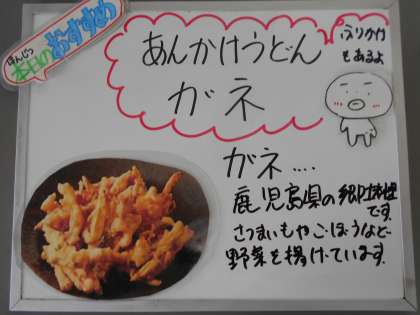 ほんじつ
本日のおすすめ
あんかけうどん
ガネ
ふりかけ
もあるよ
ガネ....
鹿児島県の郷土料理
です。
さつまいもやごぼうなど
野菜を揚げています。